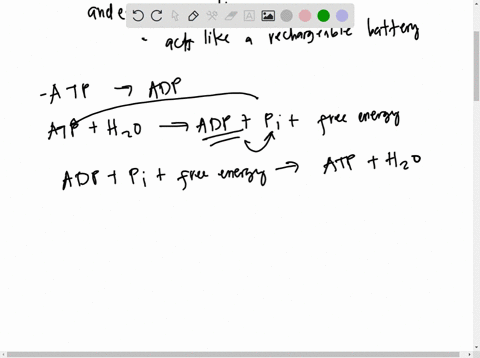 · acts like a rechargeable battery
- ATP → ADP
ATP + H2O → ADP + Pi + free energy
ADP + Pi + free energy → ATP + H2O